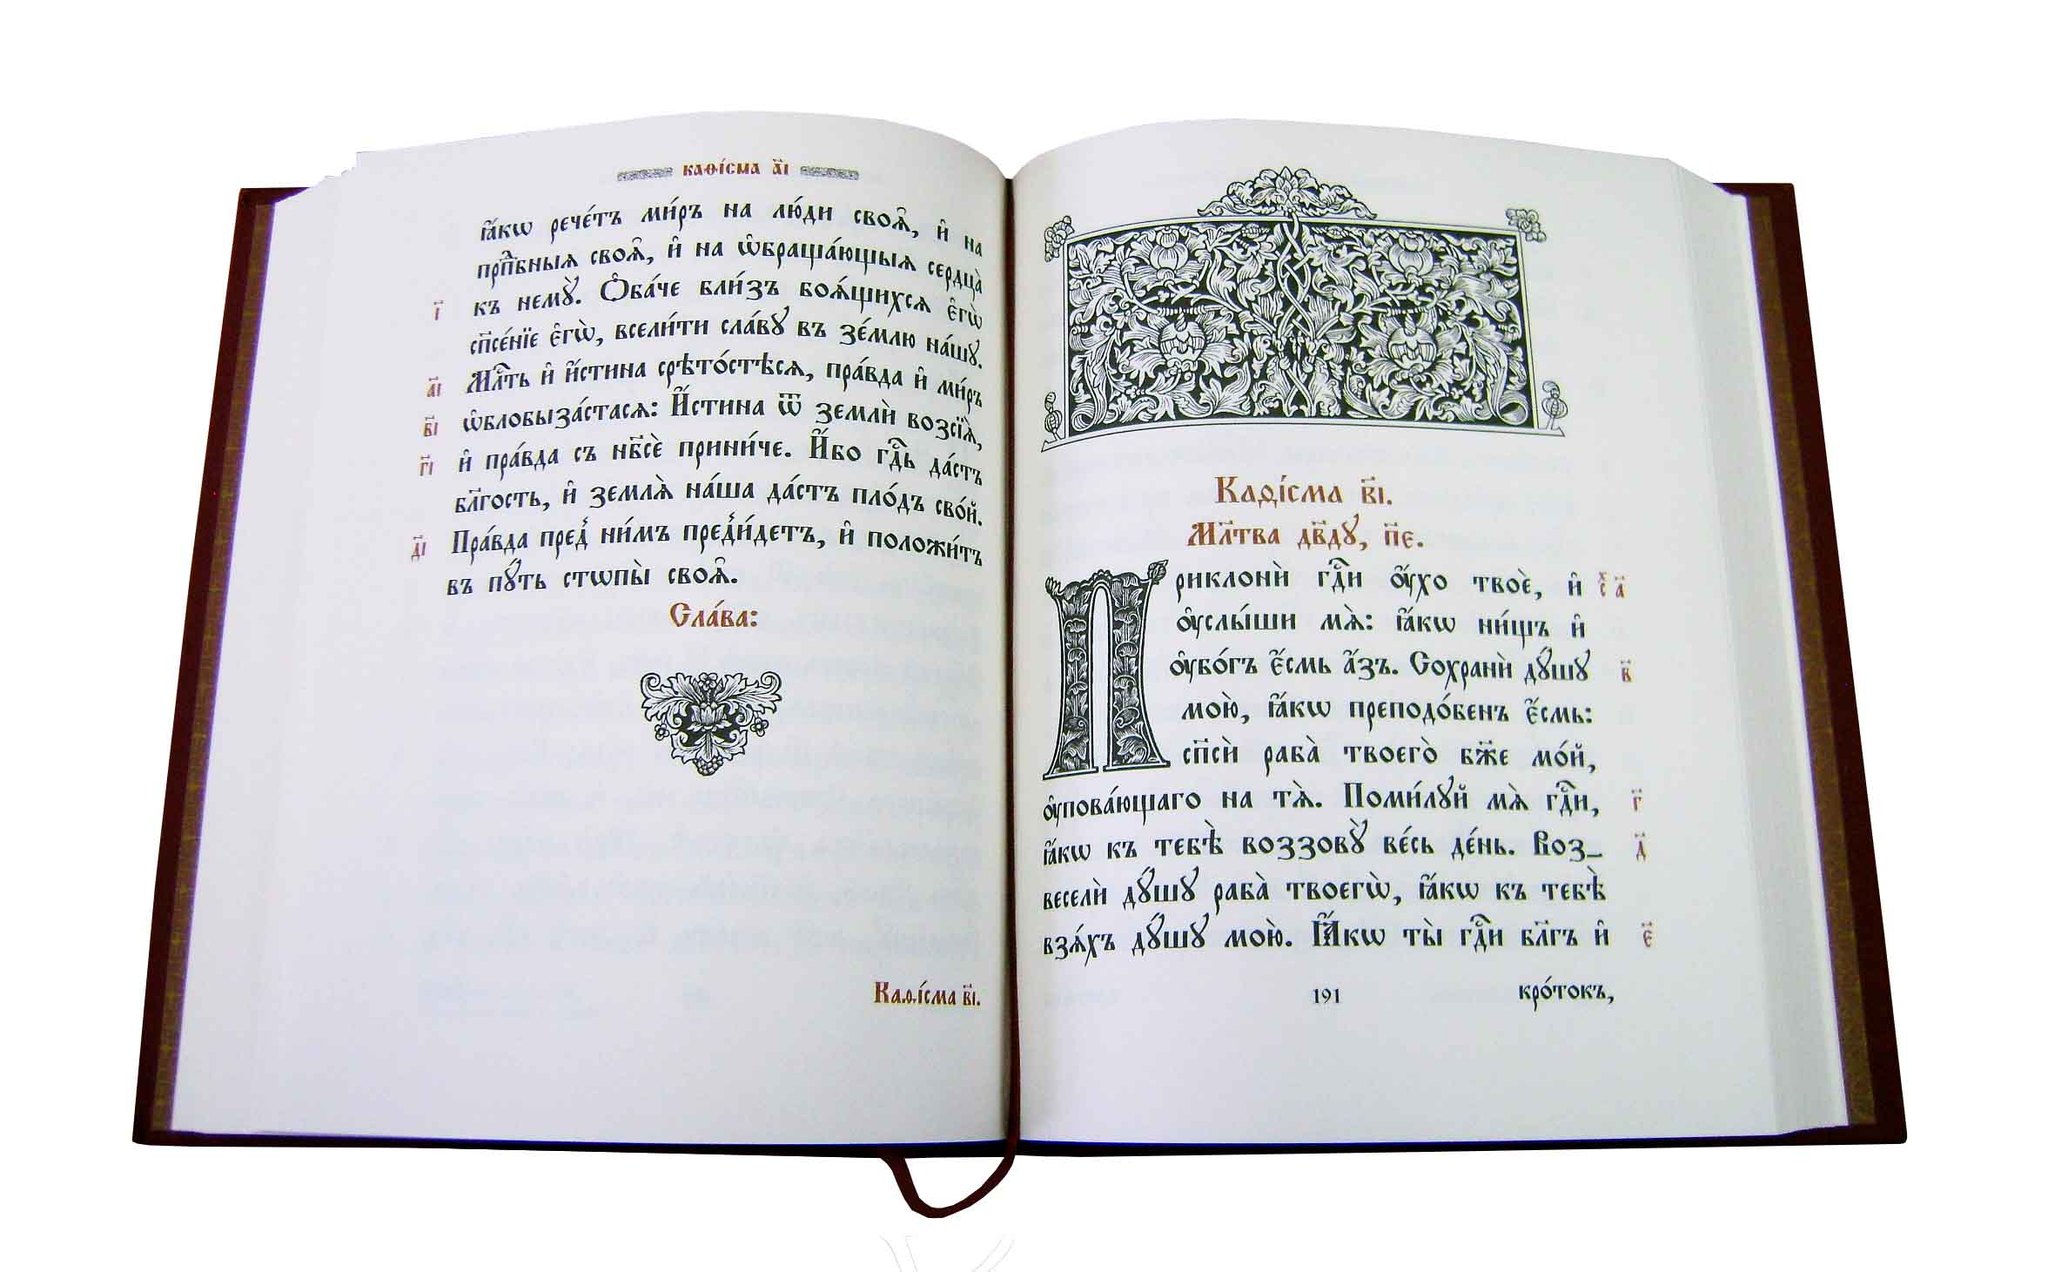 каѳі́сма а҃і
ꙗ҆́кѡ рече́тъ ми́ръ на лю́ди своѧ҄, и҆ на
прп҇бныѧ своѧ҄, и҆ на ѡ҆браща́ющыѧ сердца̀
і҃ къ немꙋ̀. Ѻ҆ба́че бли́зъ боѧ́щихсѧ є҆гѡ̀
сп҃се́нїе є҆гѡ̀, всели́ти сла́вꙋ въ зе́млю на́шꙋ.
а҃і Млⷭ҇ть и҆ и҆́стина срѣто́стѣсѧ, пра́вда и҆ ми́ръ
в҃і ѡ҆блобыза́стасѧ: И҆́стина ѿ землѝ возсїѧ̀,
г҃і и҆ пра́вда съ нб҃сѐ прини́че. И҆́бо гдⷭ҇ь да́стъ
бл҃гость, и҆ землѧ̀ на́ша да́стъ пло́дъ сво́й.
д҃і Пра́вда пред̾ ни́мъ пред̾и́детъ, и҆ положи́тъ
въ пꙋ́ть стѡпы̀ своѧ҄.
Сла́ва:
Каѳі́сма в҃і.
Каѳі́сма в҃і.
Мл҃тва дв҃дꙋ, п҃е.
Приклонѝ гдⷭ҇и ᲂу҆́хо твоѐ, и҆ с҃х а҃
ᲂу҆слы́ши мѧ̀: ꙗ҆́кѡ ни́щъ и҆
ᲂу҆бо́гъ є҆́смь а҆́зъ. Сохранѝ дꙋ́шꙋ в҃
мою̀, ꙗ҆́кѡ преподо́бенъ є҆́смь:
сп҃сѝ раба̀ твоего̀ бж҃е мо́й,
ᲂу҆пова́ющаго на тѧ̀. Поми́лꙋй мѧ̀ гдⷭ҇и, г҃
ꙗ҆́кѡ къ тебѣ̀ воззовꙋ̀ ве́сь де́нь. Воз_ д҃
веселѝ дꙋ́шꙋ раба̀ твоегѡ̀, ꙗ҆́кѡ къ тебѣ̀
взѧ́хъ дꙋ́шꙋ мою̀. Ꙗ҆́кѡ ты̀ гдⷭ҇и бл҃гъ и҆ є҃
191 кро́токъ,